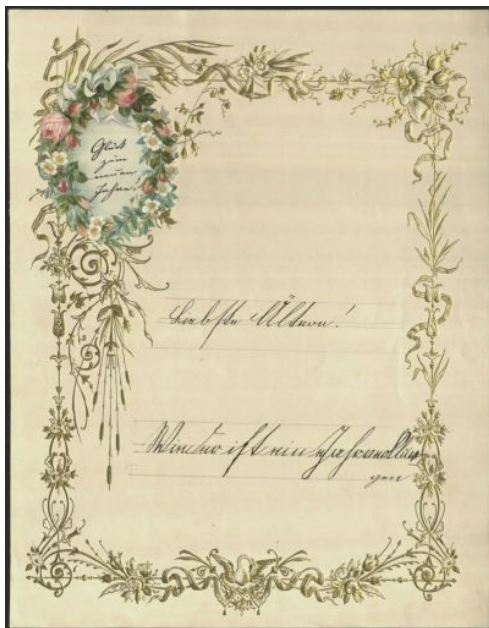 Glück
zum
neuen
Jahre!
Liebste Ältern!
Wieder ist ein Jahr entflo
gen